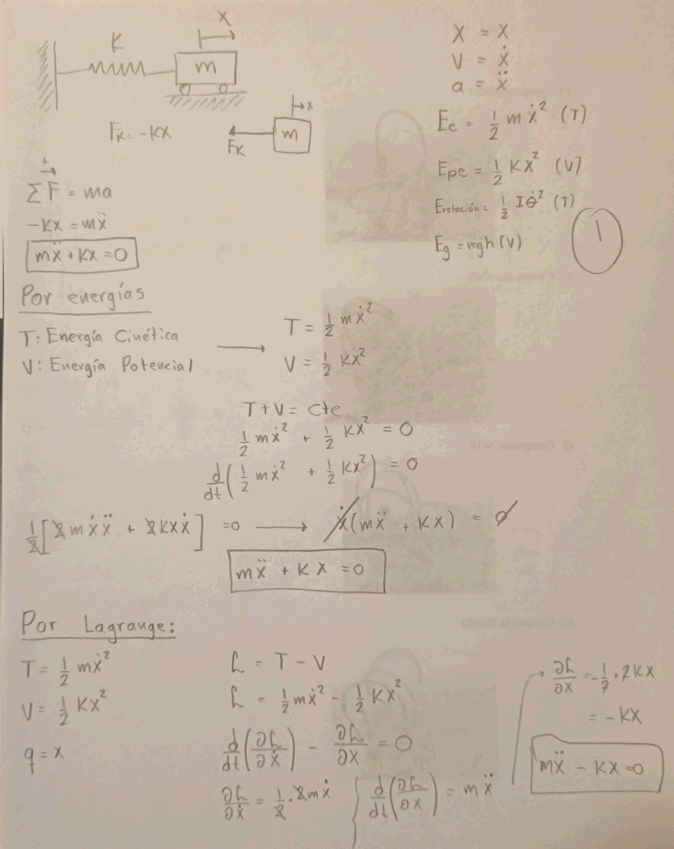 x
K
m
x
F_K = -Kx
F_K
m
ΣF = ma
-Kx = mẍ
mẍ + Kx = 0
X = x
V = ẋ
a = ẍ
Ec = 1/2 m ẋ² (T)
Epe = 1/2 Kx² (V)
Erotación = 1/2 Iθ̇² (T)
Eg = mgh (V)
1
Por energías
T: Energía Cinética
V: Energía Potencial
T = 1/2 mẋ²
V = 1/2 Kx²
T + V = Cte
1/2 mẋ² + 1/2 Kx² = 0
d/dt (1/2 mẋ² + 1/2 Kx²) = 0
1/2 [2mẋẍ + 2Kxẋ] = 0 → ẋ(mẍ + Kx) = 0
mẍ + Kx = 0
Por Lagrange:
T = 1/2 mẋ²
V = 1/2 Kx²
q = x
L = T - V
L = 1/2 mẋ² - 1/2 Kx²
d/dt (∂L/∂ẋ) - ∂L/∂x = 0
∂L/∂ẋ = 1/2 · 2mẋ { d/dt (∂L/∂ẋ) = mẍ
∂L/∂x = -1/2 · 2Kx
= -Kx
mẍ - Kx = 0